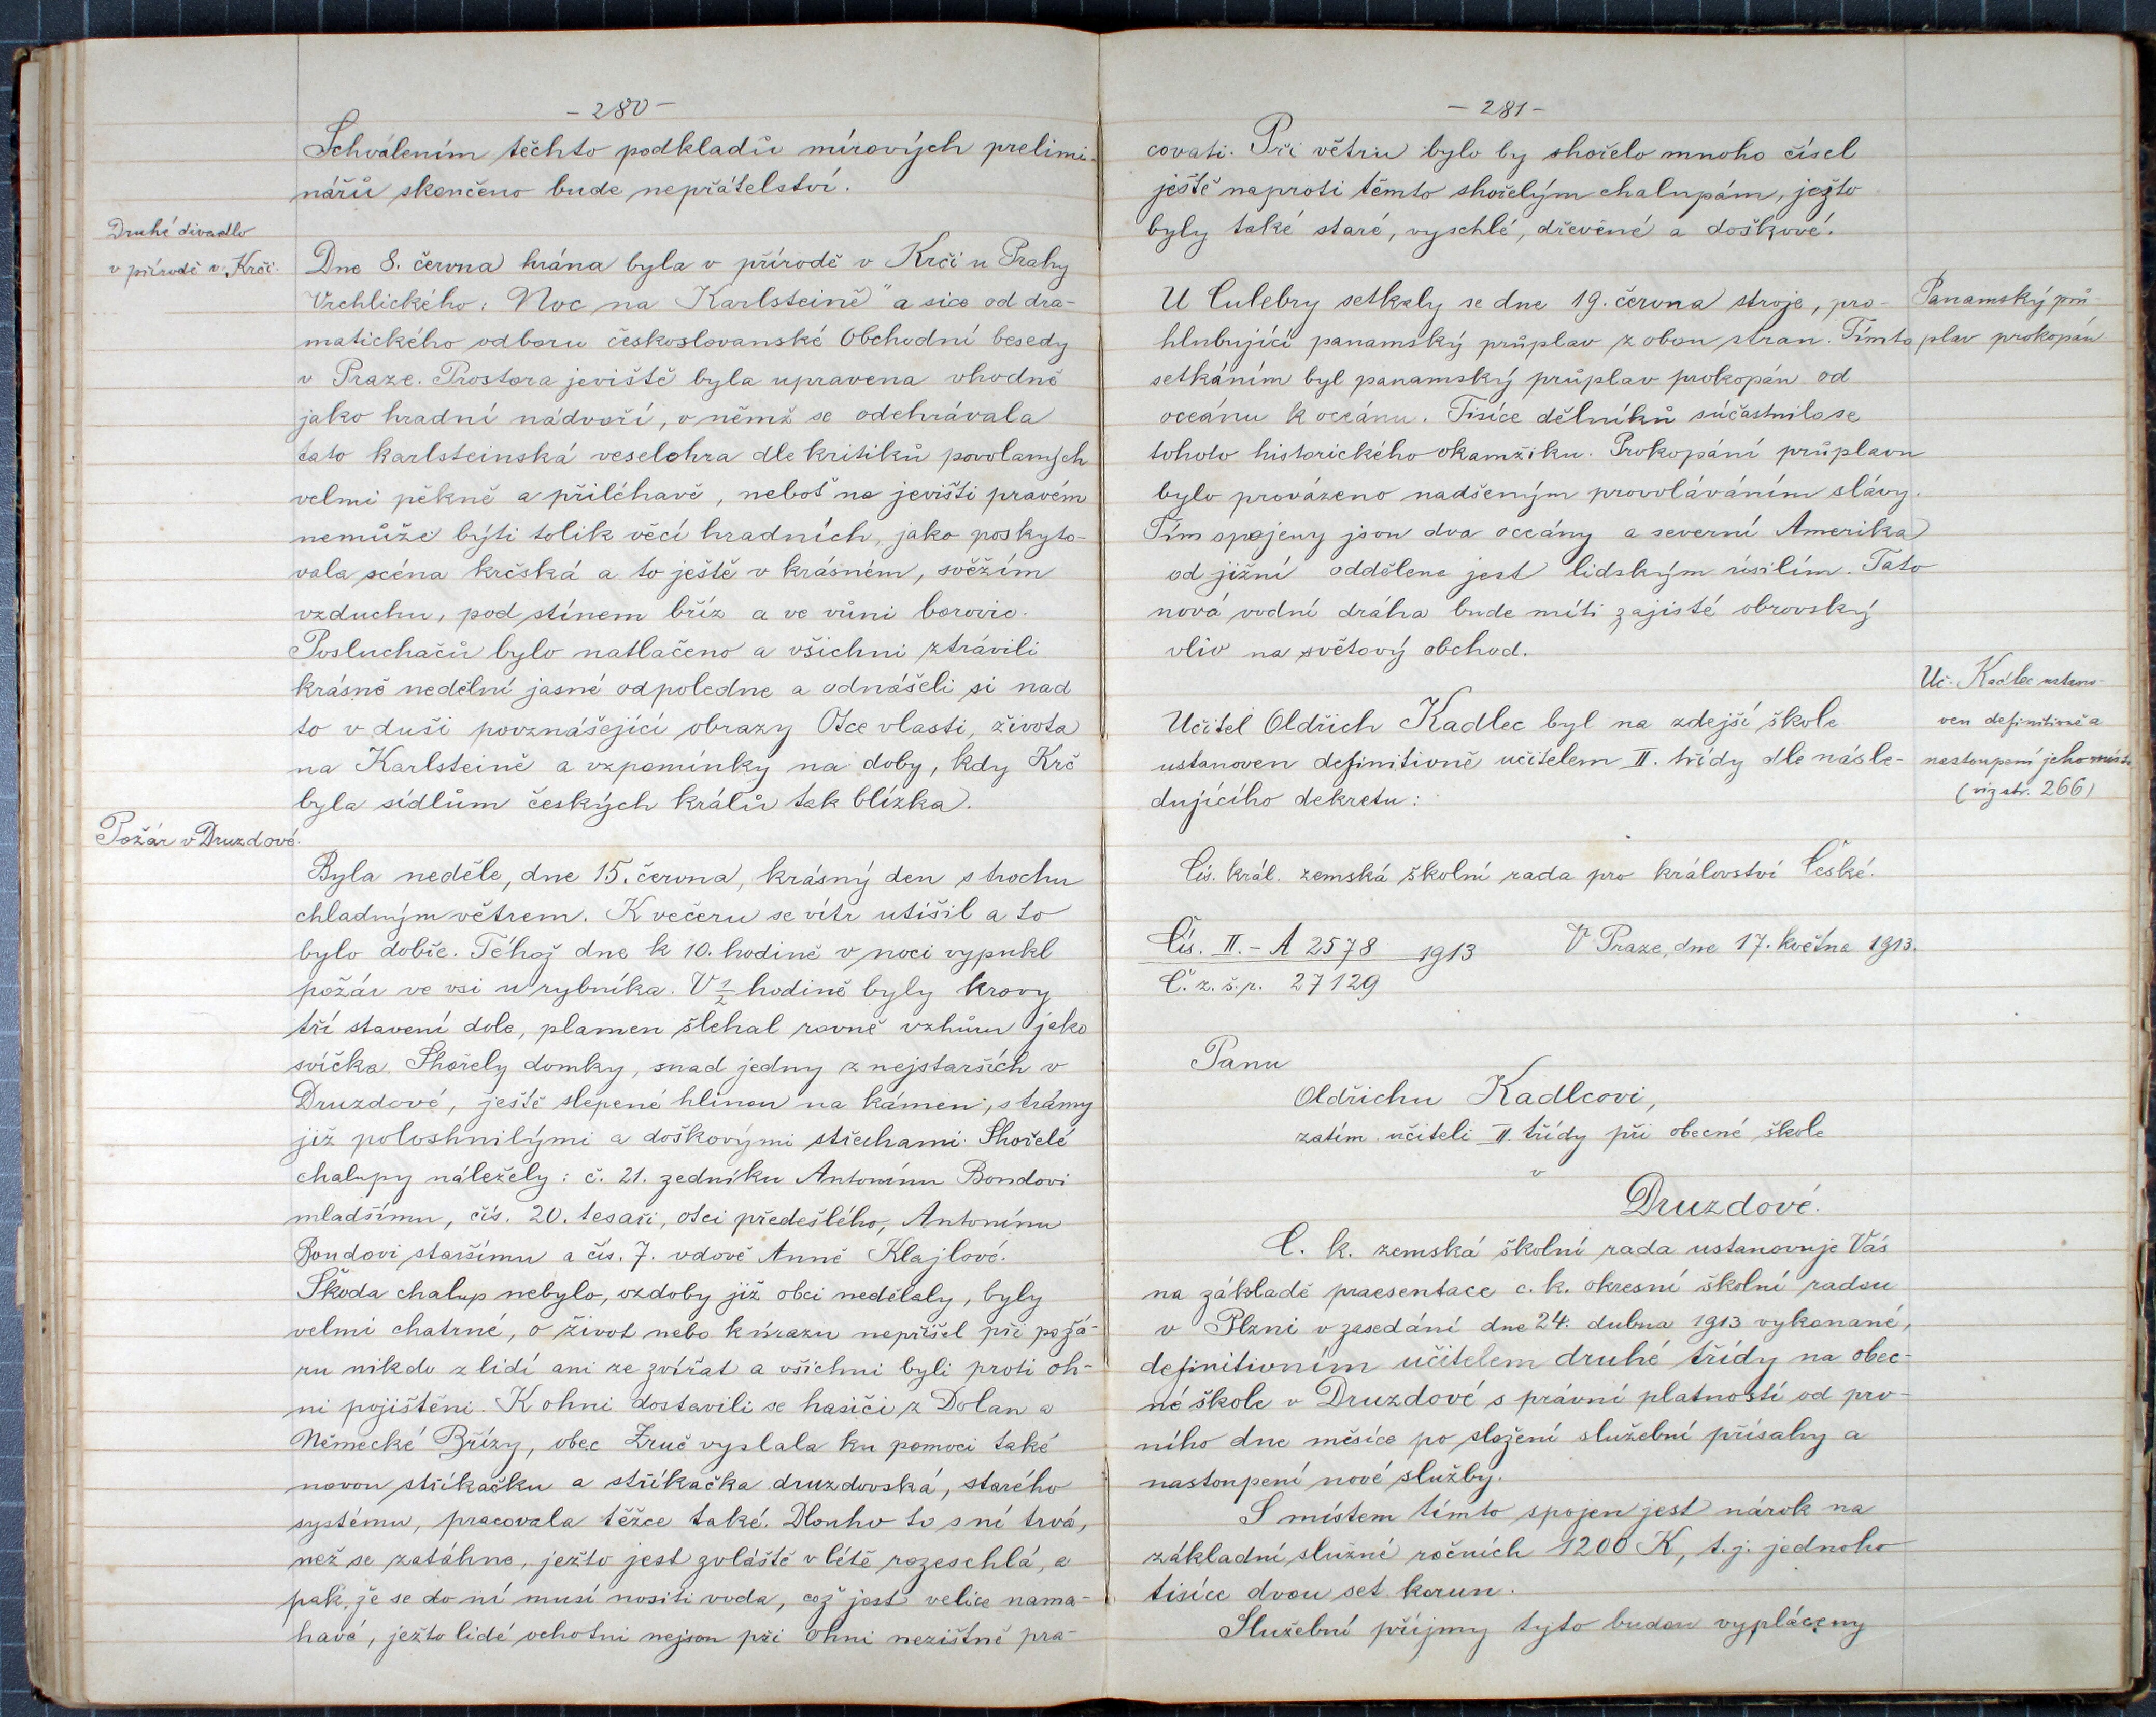 - 280 -
Schválením těchto podkladů mírových prelimi-
nářů skončeno bude nepřátelství.
Druhé divadlo
v přírodě v Krči.
Dne 8. června hrána byla v přírodě v Krči u Prahy
Vrchlického: Noc na Karlsteině" a sice od dra-
matického odboru českoslovanské Obchodní besedy
v Praze. Prostora jeviště byla upravena vhodně
jako hradní nádvoří, v němž se odehrávala
tato karlsteinská veselohra dle kritiků povolaných
velmi pěkně a přiléhavě, neboť na jevišti pravém
nemůže býti tolik věcí hradních, jako poskyto-
vala scéna krčská a to ještě v krásném, svěžím
vzduchu, pod stínem bříz a ve vůni borovic.
Posluchačů bylo natlačeno a všichni ztrávili
krásné nedělní jasné odpoledne a odnášeli si nad
to v duši povznášející obrazy Otce vlasti, života
na Karlsteině a vzpomínky na doby, kdy Krč
byla sídlům českých králů tak blízka.
Požár v Druzdové.
Byla neděle, dne 15. června, krásný den s trochu
chladným větrem. K večeru se vítr utišil a to
bylo dobře. Téhož dne k 10. hodině v noci vypukl
požár ve vsi u rybníka. V ½ hodině byly krovy
tří stavení dole, plamen šlehal rovně vzhůru jako
svíčka. Shořely domky, snad jedny z nejstarších v
Druzdové, ještě slepené hlinou na kámen, s trámy
již poloshnilými a doškovými střechami. Shořelé
chalupy náležely: č. 21. zedníku Antonínu Bondovi
mladšímu, čís. 20. tesaři, otci předešlého, Antonínu
Bondovi staršímu a čís. 7. vdově Anně Klajlové.
Škoda chalup nebylo, ozdoby již obci nedělaly, byly
velmi chatrné, o život nebo k úrazu nepřišel při požá-
ru nikdo z lidí ani ze zvířat a všichni byli proti oh-
ni pojištěni. K ohni dostavili se hasiči z Dolan a
Německé Břízy, obec Zruč vyslala ku pomoci také
novou stříkačku a stříkačka druzdovská, starého
systému, pracovala těžce také. Dlouho to s ní trvá,
než se zatáhne, ježto jest zvláště v létě rozeschlá, a
pak, že se do ní musí nositi voda, což jest velice nama-
havé, ježto lidé ochotni nejsou při ohni nezištně pra-
- 281 -
covati. Při větru bylo by shořelo mnoho čísel
ještě naproti těmto shořelým chalupám, ježto
byly také staré, vyschlé, dřevěné a doškové.
Panamský prů-
plav prokopán
U Culebry setkaly se dne 19. června stroje, pro-
hlubující panamský průplav z obou stran. Tímto
setkáním byl panamský průplav prokopán od
oceánu k oceánu. Tisíce dělníků súčastnilo se
tohoto historického okamžiku. Prokopání průplavu
bylo provázeno nadšeným provoláváním slávy.
Tím spojeny jsou dva oceány a severní Amerika
od jižní oddělena jest lidským úsilím. Tato
nová vodní dráha bude míti zajisté obrovský
vliv na světový obchod.
Uč. Kadlec ustano-
ven definitivně a
nastoupení jeho místa
(viz str. 266)
Učitel Oldřich Kadlec byl na zdejší škole
ustanoven definitivně učitelem II. třídy dle násle-
dujícího dekretu:
Cís. král. zemská školní rada pro království České.
Čís. II. - A 2578 1913 V Praze, dne 17. května 1913.
Č. z. š. r. 27129
Panu
Oldřichu Kadlcovi,
zatím. učiteli II. třídy při obecné škole
v
Druzdové.
C. k. zemská školní rada ustanovuje Vás
na základě praesentace c. k. okresní školní radou
v Plzni v zasedání dne 24. dubna 1913 vykonané,
definitivním učitelem druhé třídy na obec-
né škole v Druzdové s právní platností od prv-
ního dne měsíce po složení služební přísahy a
nastoupení nové služby.
S místem tímto spojen jest nárok na
základní služné ročních 1200 K, t. j. jednoho
tisíce dvou set korun.
Služební příjmy tyto budou vypláceny